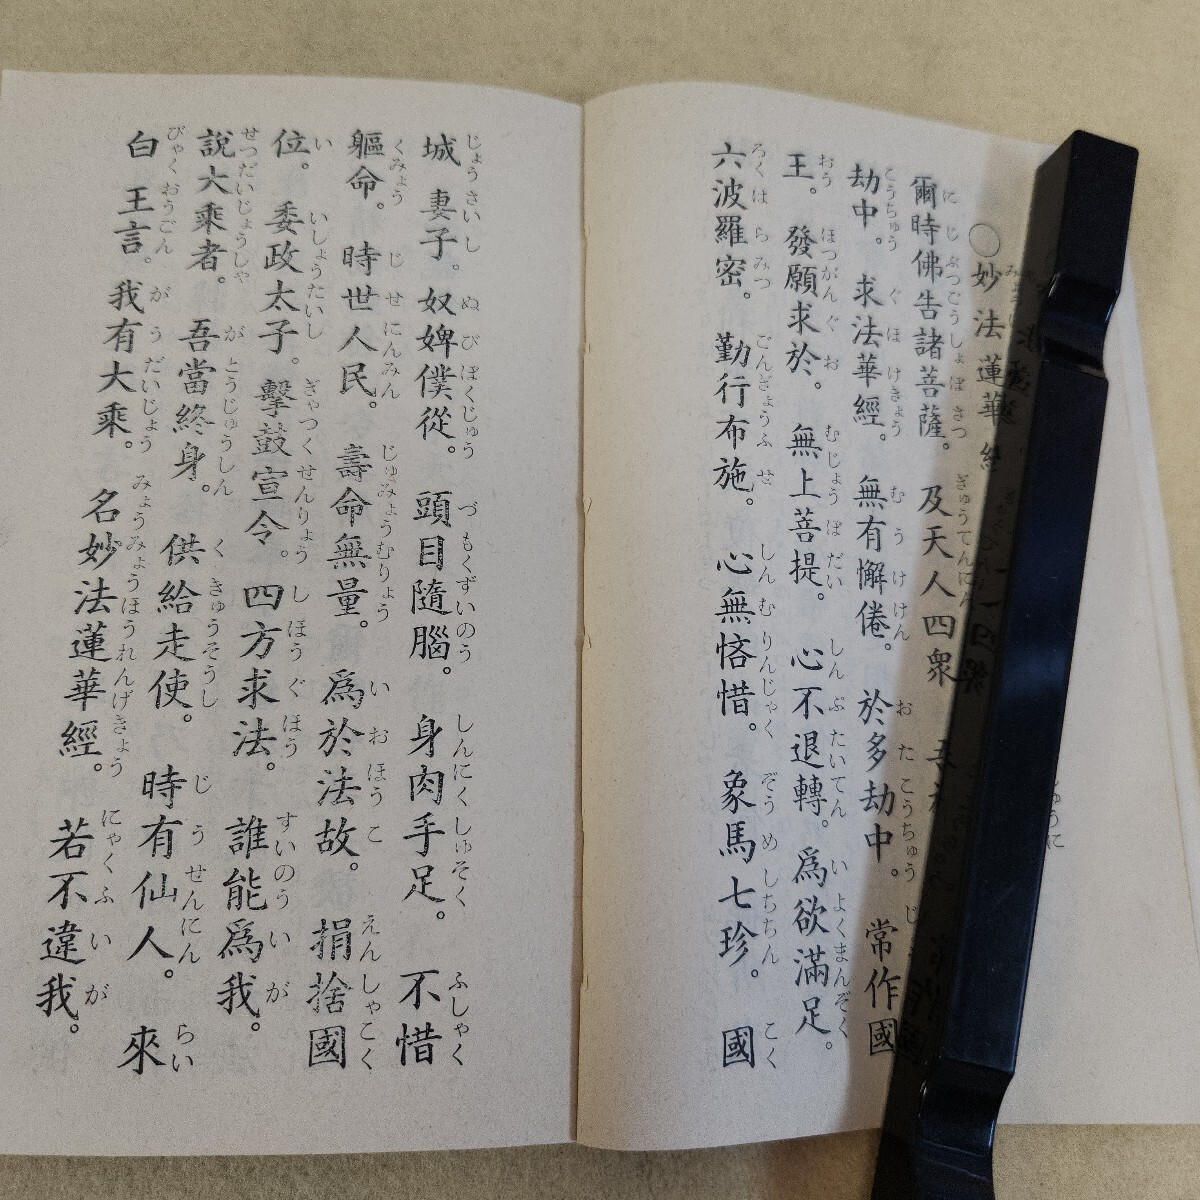 ◯妙法蓮華經
爾時佛告諸菩薩。及天人四衆
劫中。求法華經。無有懈倦。於多劫中。常作國
王。發願求於。無上菩提。心不退轉。爲欲滿足。
六波羅密。勤行布施。心無悋惜。象馬七珍。國
城妻子。奴婢僕從。頭目隨腦。身肉手足。不惜
軀命。時世人民。壽命無量。爲於法故。捐捨國
位。委政太子。擊鼓宣令。四方求法。誰能爲我。
說大乘者。吾當終身。供給走使。時有仙人。來
白王言。我有大乘。名妙法蓮華經。若不違我。